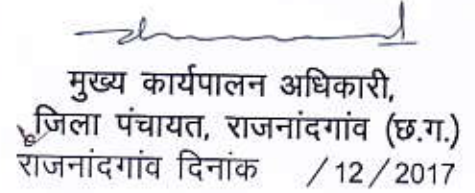 मुख्य कार्यपालन अधिकारी,
जिला पंचायत, राजनांदगांव (छ.ग.)
राजनांदगांव दिनांक / 12 / 2017